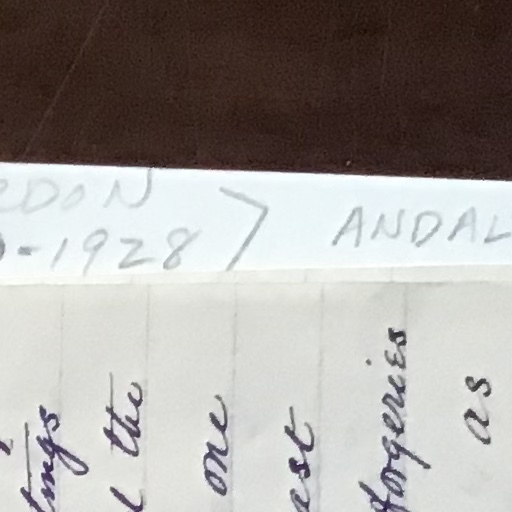 tings
the
one
ast
forgeries
as
RDON
-1928
ANDAL